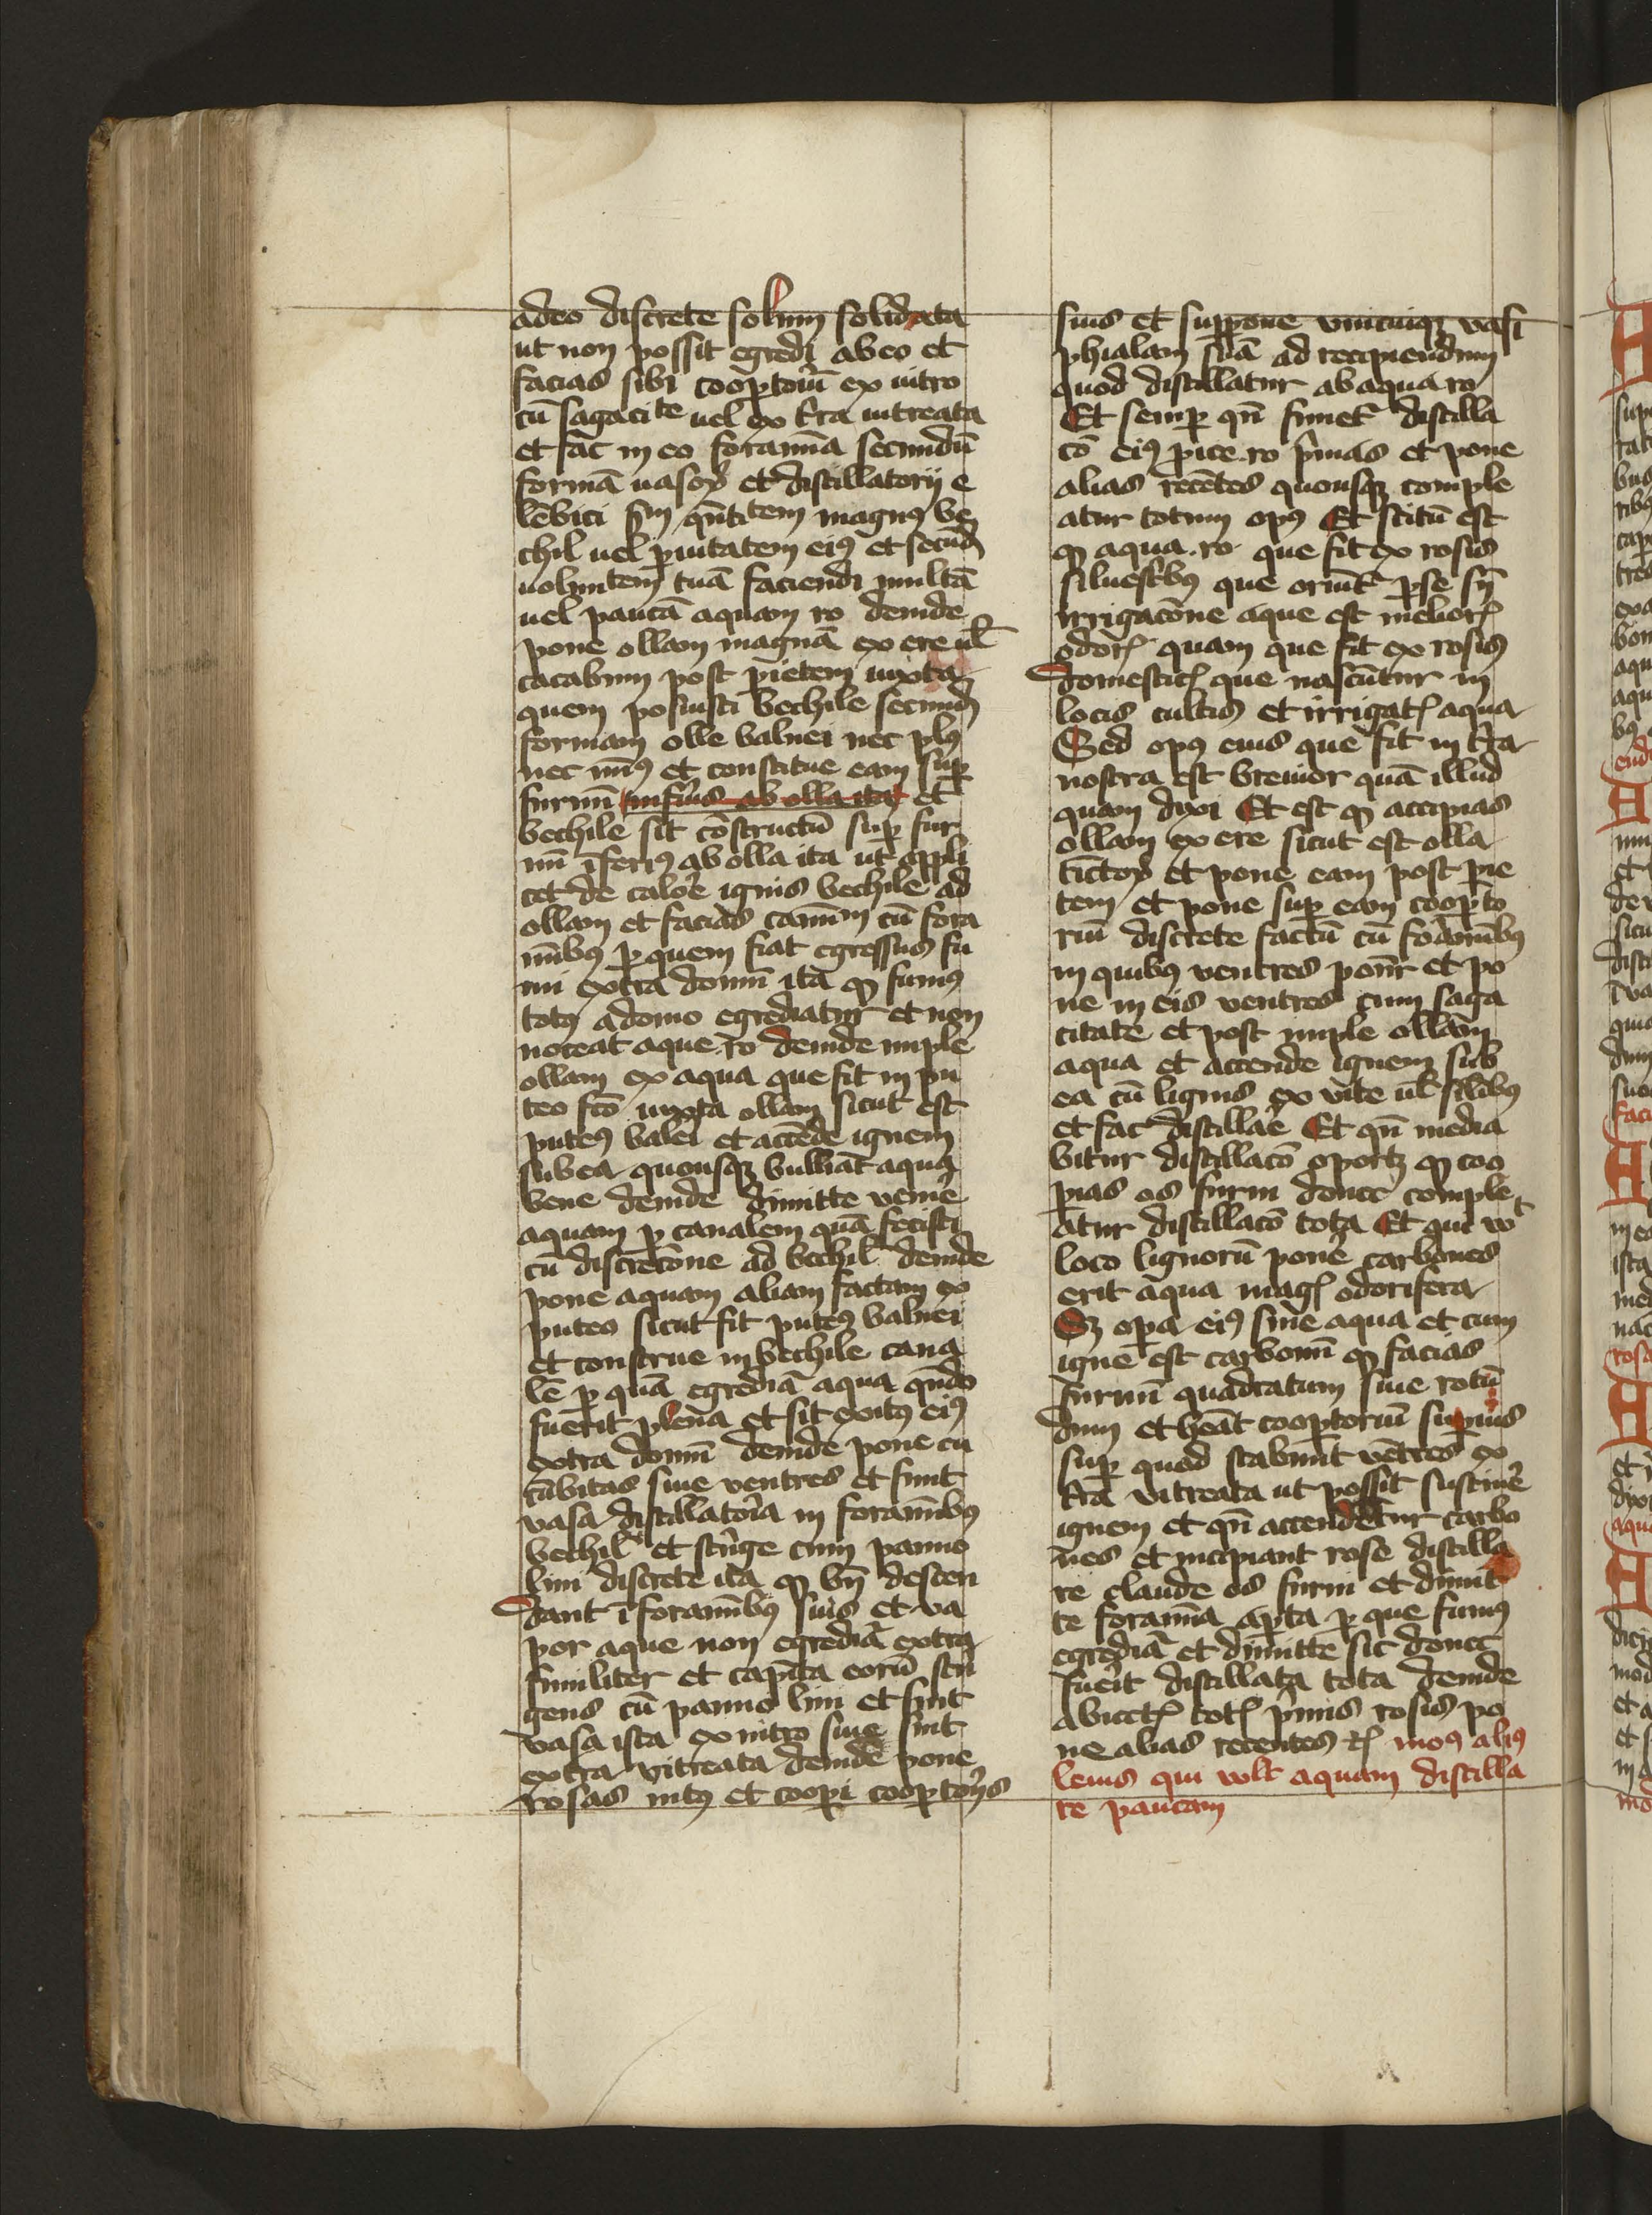 adeo discrete solum solidata
ut non possit egredi ab eo et
facias sibi cooptoiū ex uitro
cū sagacite uel ex t̄ra uitreata
et fac in eo foramīa secundū
formā uasoꝝ et distillatorij e
lēbici sm̄ qn̄titem magnꝰ be
chil uel puitatem eiꝰ et secūd
uolūntem tuā faciendi multā
uel paucā aquam ro deinde
pone ollam magnā ex ere ul̄
cacabum post pietem iuxta
quem posuisti bechile secund
formam olle balnei nec plꝰ
nec minꝰ et constitue eam sup̄
furnū infīus ab olla ita et
bechile sit cōstructū sup̄ fur
nū īferiꝰ ab olla ita ut appli
cet de calore ignis bechile ad
ollam et facias caminū cū fora
minibꝰ ꝑ quem fiat egressus fu
mi extra domū ita ꝙ fumꝰ
totꝰ a domo egrediatur et non
noceat aque ro deinde imple
ollam ex aqua que fit in pu
teo fc̄o iuxta ollam sicut est
puteꝰ balei et accēde ignem
sub ea quousqꝫ bulliat aqua
bene deinde dimitte venire
aquam ꝑ canalem quā fecisti
cū discretōne ad bechil̄ deinde
pone aquam aliam factam ex
puteo sicut fit puteꝰ balnei
et construe in bechile cana
lē ꝑ quā egrediā aqua qn̄do
fuerit plena et sit exitꝰ eiꝰ
extra domū deinde pone cu
cūbitas siue ventres et sunt
vasa distillatoria in foraminibꝰ
bechil̄ et strīge cum panno
lini discrete ita ꝙ bn̄ descen
dant ī foraminibꝰ suis et va
por aque non egrediā extra
similiter et capita eorū strī
gens cū panno lini et sint
vasa ista ex uitro siue sint
ex t̄ra vitreata deinde pone
rosas intꝰ et coopi cooptorijs
suis et suppone vnicuiqꝫ vasi
phialam suā ad recipiendum
quod distillatur ab aqua ro
Et semp̄ qn̄ finiet̄ distilla
cō eiꝰ ꝓice ro p̄mas et pone
alias recētes quousqꝫ comple
atur totum opꝰ Et scitū est
ꝙ aqua ro que fit ex rosis
siluestrībꝰ que oriūt̄ p̄ se sn̄
irrigatōne aque est melioris
odoris quam que fit ex rosis
domestic̄ que nascūntur in
locis cultis et irrigatꝭ aqua
Sed opꝰ eius que fit in t̄ra
nostra est breuior quā illud
quam dixi Et est ꝙ accipias
ollam ex ere sicut est olla
tīctoꝝ et pone eam post pie
tem et pone sup̄ eam coopto
riū discrete factū cū foraminibꝰ
in quibꝰ ventres ponūr et po
ne in eis ventres cum saga
citate et post imple ollam
aqua et accende ignem sub
ea cū lignis ex vite ul̄ silibꝰ
et fac distillare Et qn̄ media
bitur distillacō oportꝫ ꝙ coo
pias os furni donec comple
atur distillacō tota Et qui vˡt
loco lignorū ponē carbones
erit aqua magꝭ odorifera
Sꝫ opa eiꝰ sine aqua et cum
igne est carbonū ꝙ facias
furnū quadratum siue rotū
dum et hēāt cooptoriū supius
sup̄ quod stabunt vētres ex
t̄ra vitreata ut possit sustinē
ignem et qn̄ accendetur carbo
nes et incipiant rose distilla
re claude os furni et dimit
te foramīa apta ꝑ que fumꝰ
egrediā et dimitte sic donec
fueīt distillata tota deinde
abiectꝭ totꝭ p̄mis rosis po
ne alias recentes rꝭ moꝰ aliꝰ
leuis qui vult aquam distilla
re paucam